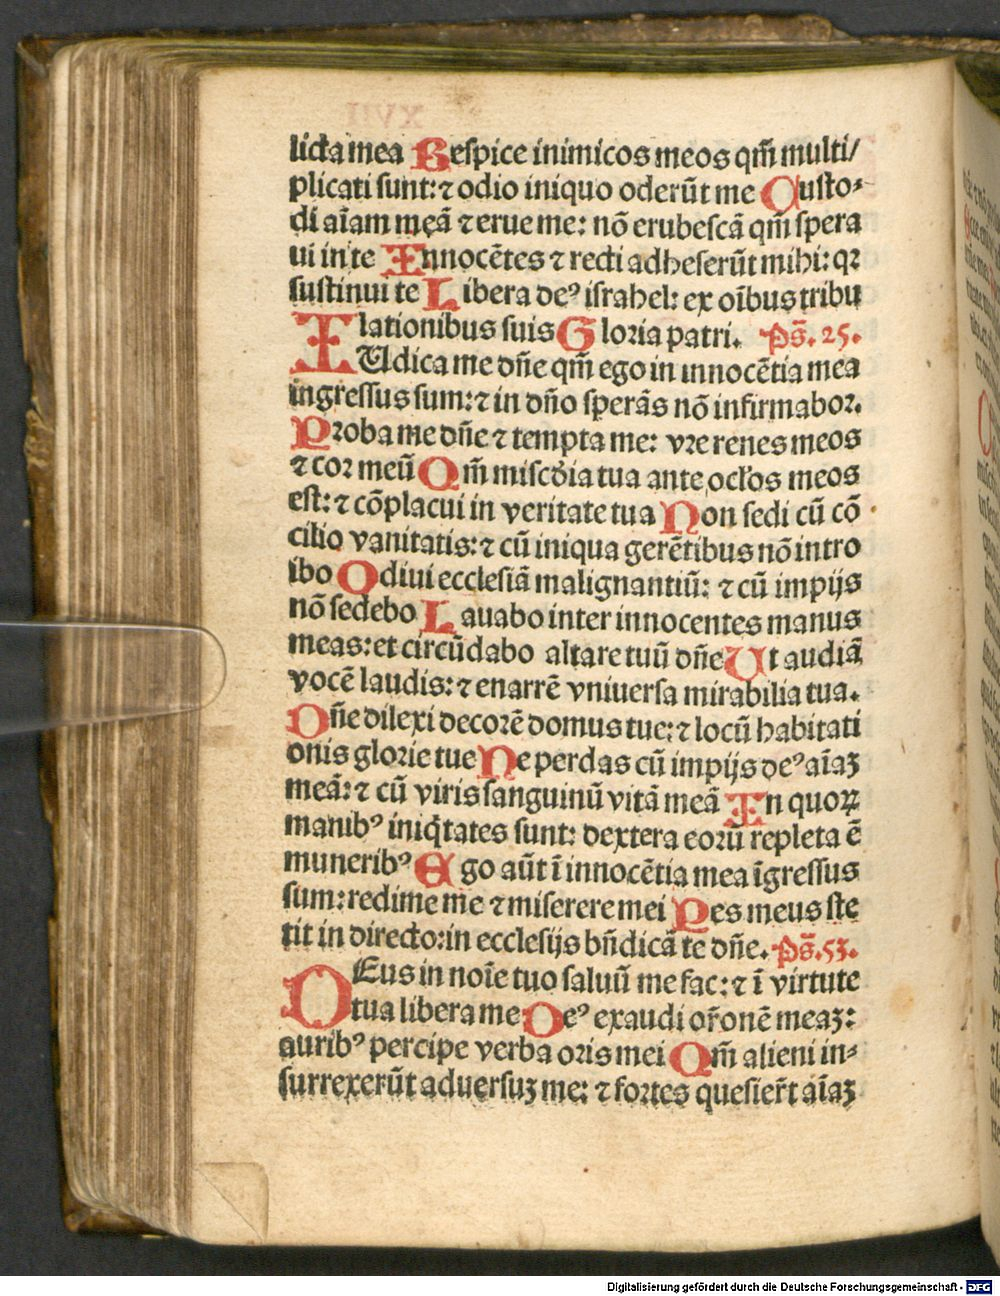 licta mea Respice inimicos meos qm̄ multi/
plicati sunt: ⁊ odio iniquo oderūt me Custo⸗
di aīam meā ⁊ erue me: nō erubescā qm̄ spera
ui in te Innocētes ⁊ recti adheserūt mihi: qꝛ
sustinui te Libera deꝰ israhel: ex oībus tribu
lationibus suis Gloria patri. Ps̄. 25.
IUdica me dn̄e qm̄ ego in innocētia mea
ingressus sum: ⁊ in dn̄o sperās nō infirmabor.
Proba me dn̄e ⁊ tempta me: vre renes meos
⁊ cor meū Qm̄ miscďia tua ante ocl̄os meos
est: ⁊ cōplacui in veritate tua Non sedi cū cō
cilio vanitatis: ⁊ cū iniqua gerētibus nō intro
ibo Odiui ecclesiā malignantiū: ⁊ cū impijs
nō sedebo Lauabo inter innocentes manus
meas: et circūdabo altare tuū dn̄e Ut audiā
vocē laudis: ⁊ enarrē vniuersa mirabilia tua.
Dn̄e dilexi decorē domus tue: ⁊ locū habitati
onis glorie tue Ne perdas cū impijs deꝰ aīaꝫ
meā: ⁊ cū viris sanguinū vitā meā In quoꝝ
manibꝰ iniq̇tates sunt: dextera eorū repleta ē
muneribꝰ Ego aūt ī innocētia mea īgressus
sum: redime me ⁊ miserere mei Pes meus ste
tit in directo: in ecclesijs bn̄dicā te dn̄e. Ps̄. 53.
DEus in noīe tuo saluū me fac: ⁊ ī virtute
tua libera me Deꝰ exaudi or̄onē meaꝫ:
auribꝰ percipe verba oris mei Qm̄ alieni in⸗
surrexerūt aduersuꝫ me: ⁊ fortes quesier̄t aīaꝫ
Digitalisierung gefördert durch die Deutsche Forschungsgemeinschaft - DFG